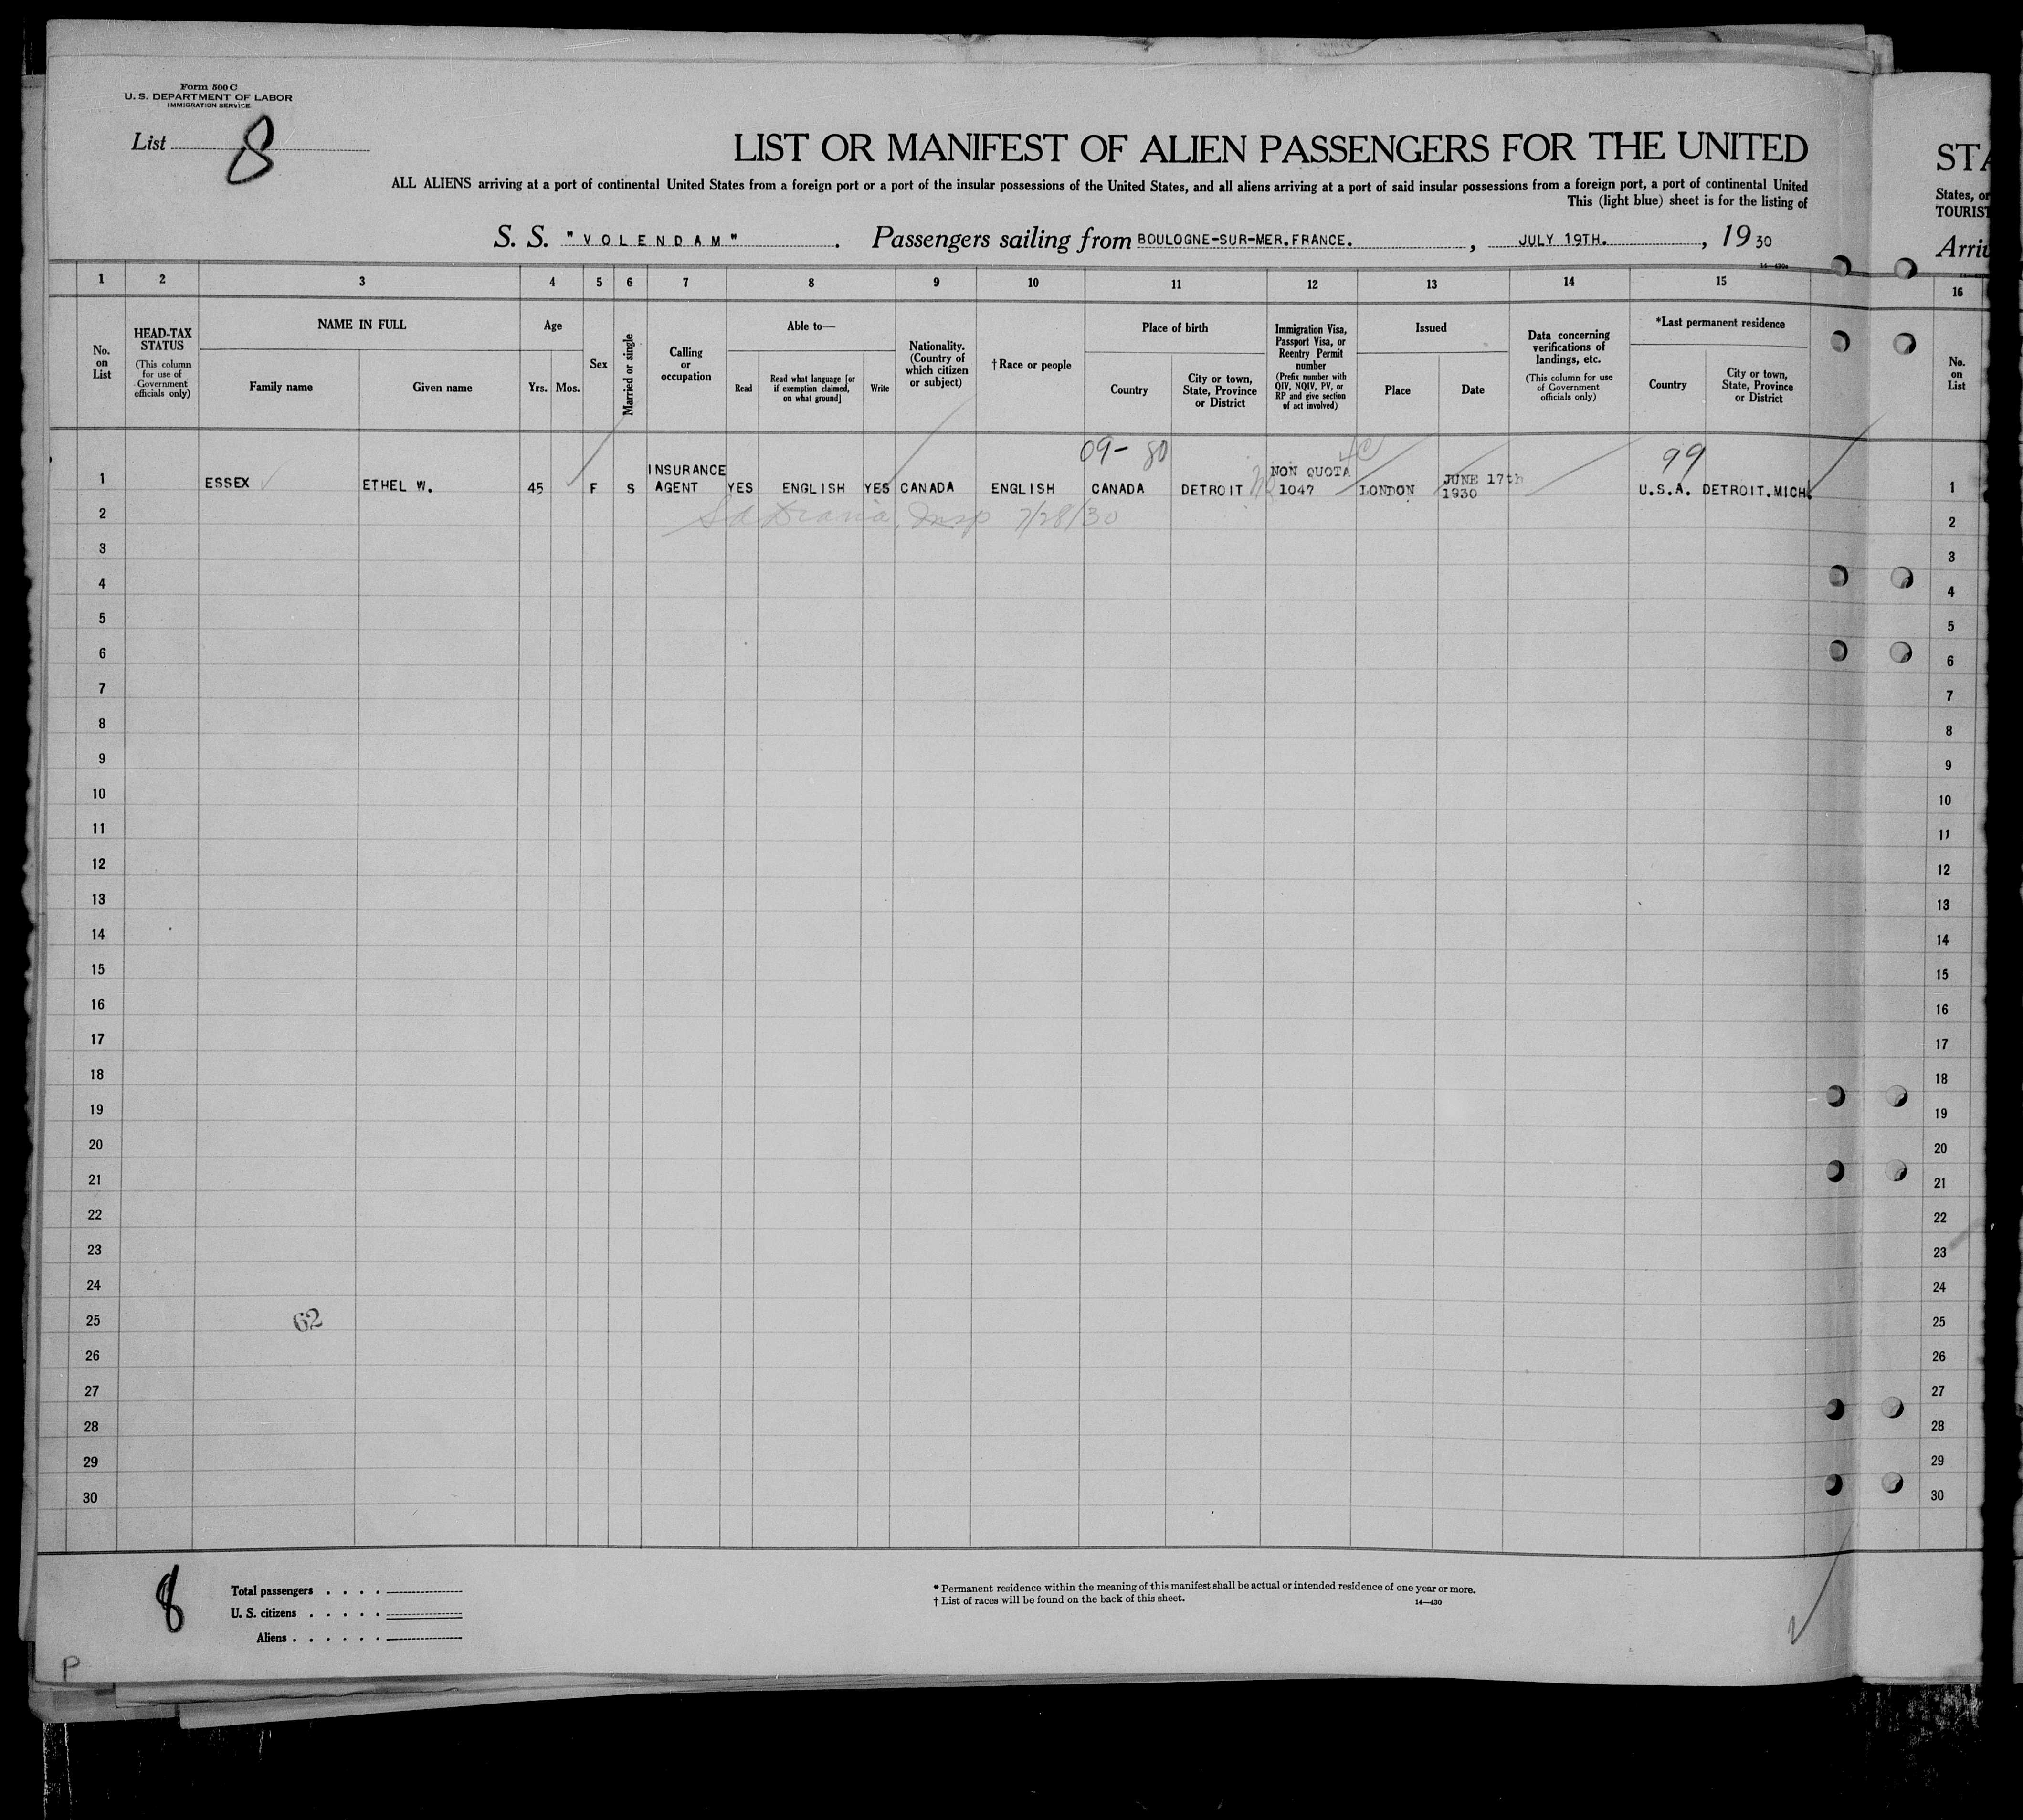 Form 500 C
U. S. DEPARTMENT OF LABOR
IMMIGRATION SERVICE
List 8
LIST OR MANIFEST OF ALIEN PASSENGERS FOR THE UNITED
STA
ALL ALIENS arriving at a port of continental United States from a foreign port or a port of the insular possessions of the United States, and all aliens arriving at a port of said insular possessions from a foreign port, a port of continental United
States, or
This (light blue) sheet is for the listing of
TOURIST
S. S. "VOLENDAM". Passengers sailing from BOULOGNE-SUR-MER.FRANCE., JULY 19TH., 1930
Arri
14—430a
1 2 3 4 5 6 7 8 9 10 11 12 13 14 15 16
No. on List
HEAD-TAX STATUS (This column for use of Government officials only)
NAME IN FULL
Family name
Given name
Age
Yrs. Mos.
Sex
Married or single
Calling or occupation
Able to—
Read
Read what language [or if exemption claimed, on what ground]
Write
Nationality. (Country of which citizen or subject)
† Race or people
Place of birth
Country
City or town, State, Province or District
Immigration Visa, Passport Visa, or Reentry Permit number (Prefix number with QIV, NQIV, PV, or RP and give section of act involved)
Issued
Place
Date
Data concerning verifications of landings, etc. (This column for use of Government officials only)
*Last permanent residence
Country
City or town, State, Province or District
No. on List
09- 80 4C 99
1 ESSEX ETHEL W. 45 F S INSURANCE AGENT YES ENGLISH YES CANADA ENGLISH CANADA DETROIT NON QUOTA 1047 LONDON JUNE 17th 1930 U.S.A. DETROIT.MICH. 1
2 Insp 7/28/30 2
3 3
4 4
5 5
6 6
7 7
8 8
9 9
10 10
11 11
12 12
13 13
14 14
15 15
16 16
17 17
18 18
19 19
20 20
21 21
22 22
23 23
24 24
25 62 25
26 26
27 27
28 28
29 29
30 30
8
Total passengers . . . .
U. S. citizens . . . . .
Aliens . . . . . .
* Permanent residence within the meaning of this manifest shall be actual or intended residence of one year or more.
† List of races will be found on the back of this sheet.
14—430
P